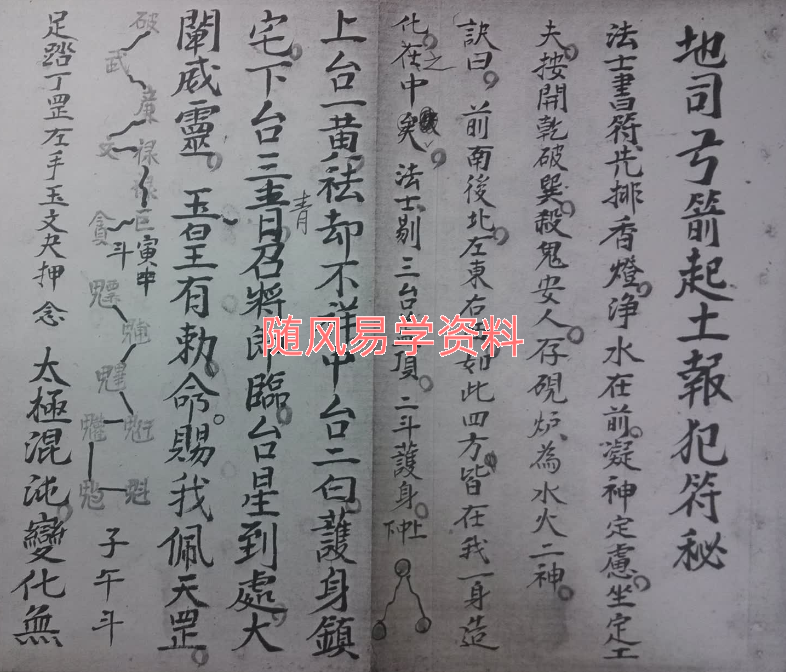 地司弓箭起土報犯符秘
法士書符先排香燈净水在前凝神定慮坐定工
夫按開乾破巽殺鬼安人存硯炉為水火二神
訣曰前南後北左東右 如此四方皆在我一身造
化之在中矣法士剔三台 頂二斗護身
上 中 下
上台一黄祛却不祥中台二白護身鎮
宅下台三青召將郎臨台星到處大
青
闡威靈玉皇有勅命賜我佩天罡
破 武 廉 文 祿 巨 貪
寅申斗
魁
子午斗
足踏丁罡左手玉文尺押念太極混沌變化無
随风易学资料